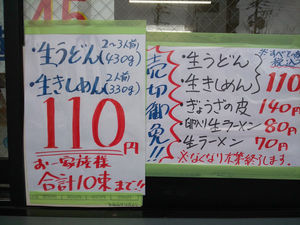 ・生うどん 2～3人前(430g)
・生きしめん 2人前(330g)
110円
お一家族様
合計10束まで!!
売切御免!!
・生うどん
・生きしめん 110
・ぎょうざの皮 140円
・卵入り生ラーメン 80円
・生ラーメン 70円
※なくなり次第終了します。